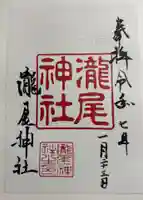 奉拝 令和七年
一月二十三日
瀧尾神社
瀧尾神社